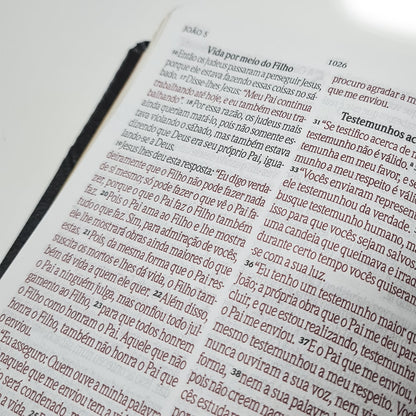 JOÃO 5
1026
Vida por meio do Filho
16 Então os judeus passaram a perseguir Jesus,
porque ele estava fazendo essas coisas no sá-
bado. 17 Disse-lhes Jesus: "Meu Pai continua
trabalhando até hoje, e eu também estou tra-
balhando". 18 Por essa razão, os judeus mais
ainda queriam matá-lo, pois não somente es-
tava violando o sábado, mas também estava
dizendo que Deus era seu próprio Pai, igua-
lando-se a Deus.
19 Jesus lhes deu esta resposta: "Eu digo verda-
deiramente que o Filho não pode fazer nada
de si mesmo; só pode fazer o que vê o Pai fa-
zer, porque o que o Pai faz o Filho também
faz. 20 Pois o Pai ama ao Filho e lhe mostra
tudo o que faz. Sim, para admiração de vocês,
ele lhe mostrará obras ainda maiores do que
estas. 21 Pois, da mesma forma que o Pai res-
suscita os mortos e lhes dá vida, o Filho tam-
bém dá vida a quem ele quer. 22 Além disso,
o Pai a ninguém julga, mas confiou todo jul-
gamento ao Filho, 23 para que todos honrem
o Filho como honram o Pai. Aquele que não
honra o Filho, também não honra o Pai que
o enviou.
"Eu asseguro: Quem ouve a minha palavra
naquele que me enviou tem a vida
será condenado, mas
procuro agradar a
que me enviou.
Testemunhos
31 "Se testifico acerca de
testemunho não é válido.
testemunha em meu favor, e
nho a meu respeito é
33 "Vocês enviaram representantes
testemunhou da verdade.
busque testemunho humano,
isso para que vocês sejam salvos.
uma candeia que queimava e
durante certo tempo vocês quiseram
se com a sua luz.
36 "Eu tenho um testemunho maior
João; a própria obra que o Pai me deu para
cluir, e que estou realizando, testemunha
o Pai me enviou. 37 E o Pai que me
mesmo testemunhou a meu respeito.
nunca ouviram a sua voz, nem
forma, 38 nem a sua palavra
pois não creem